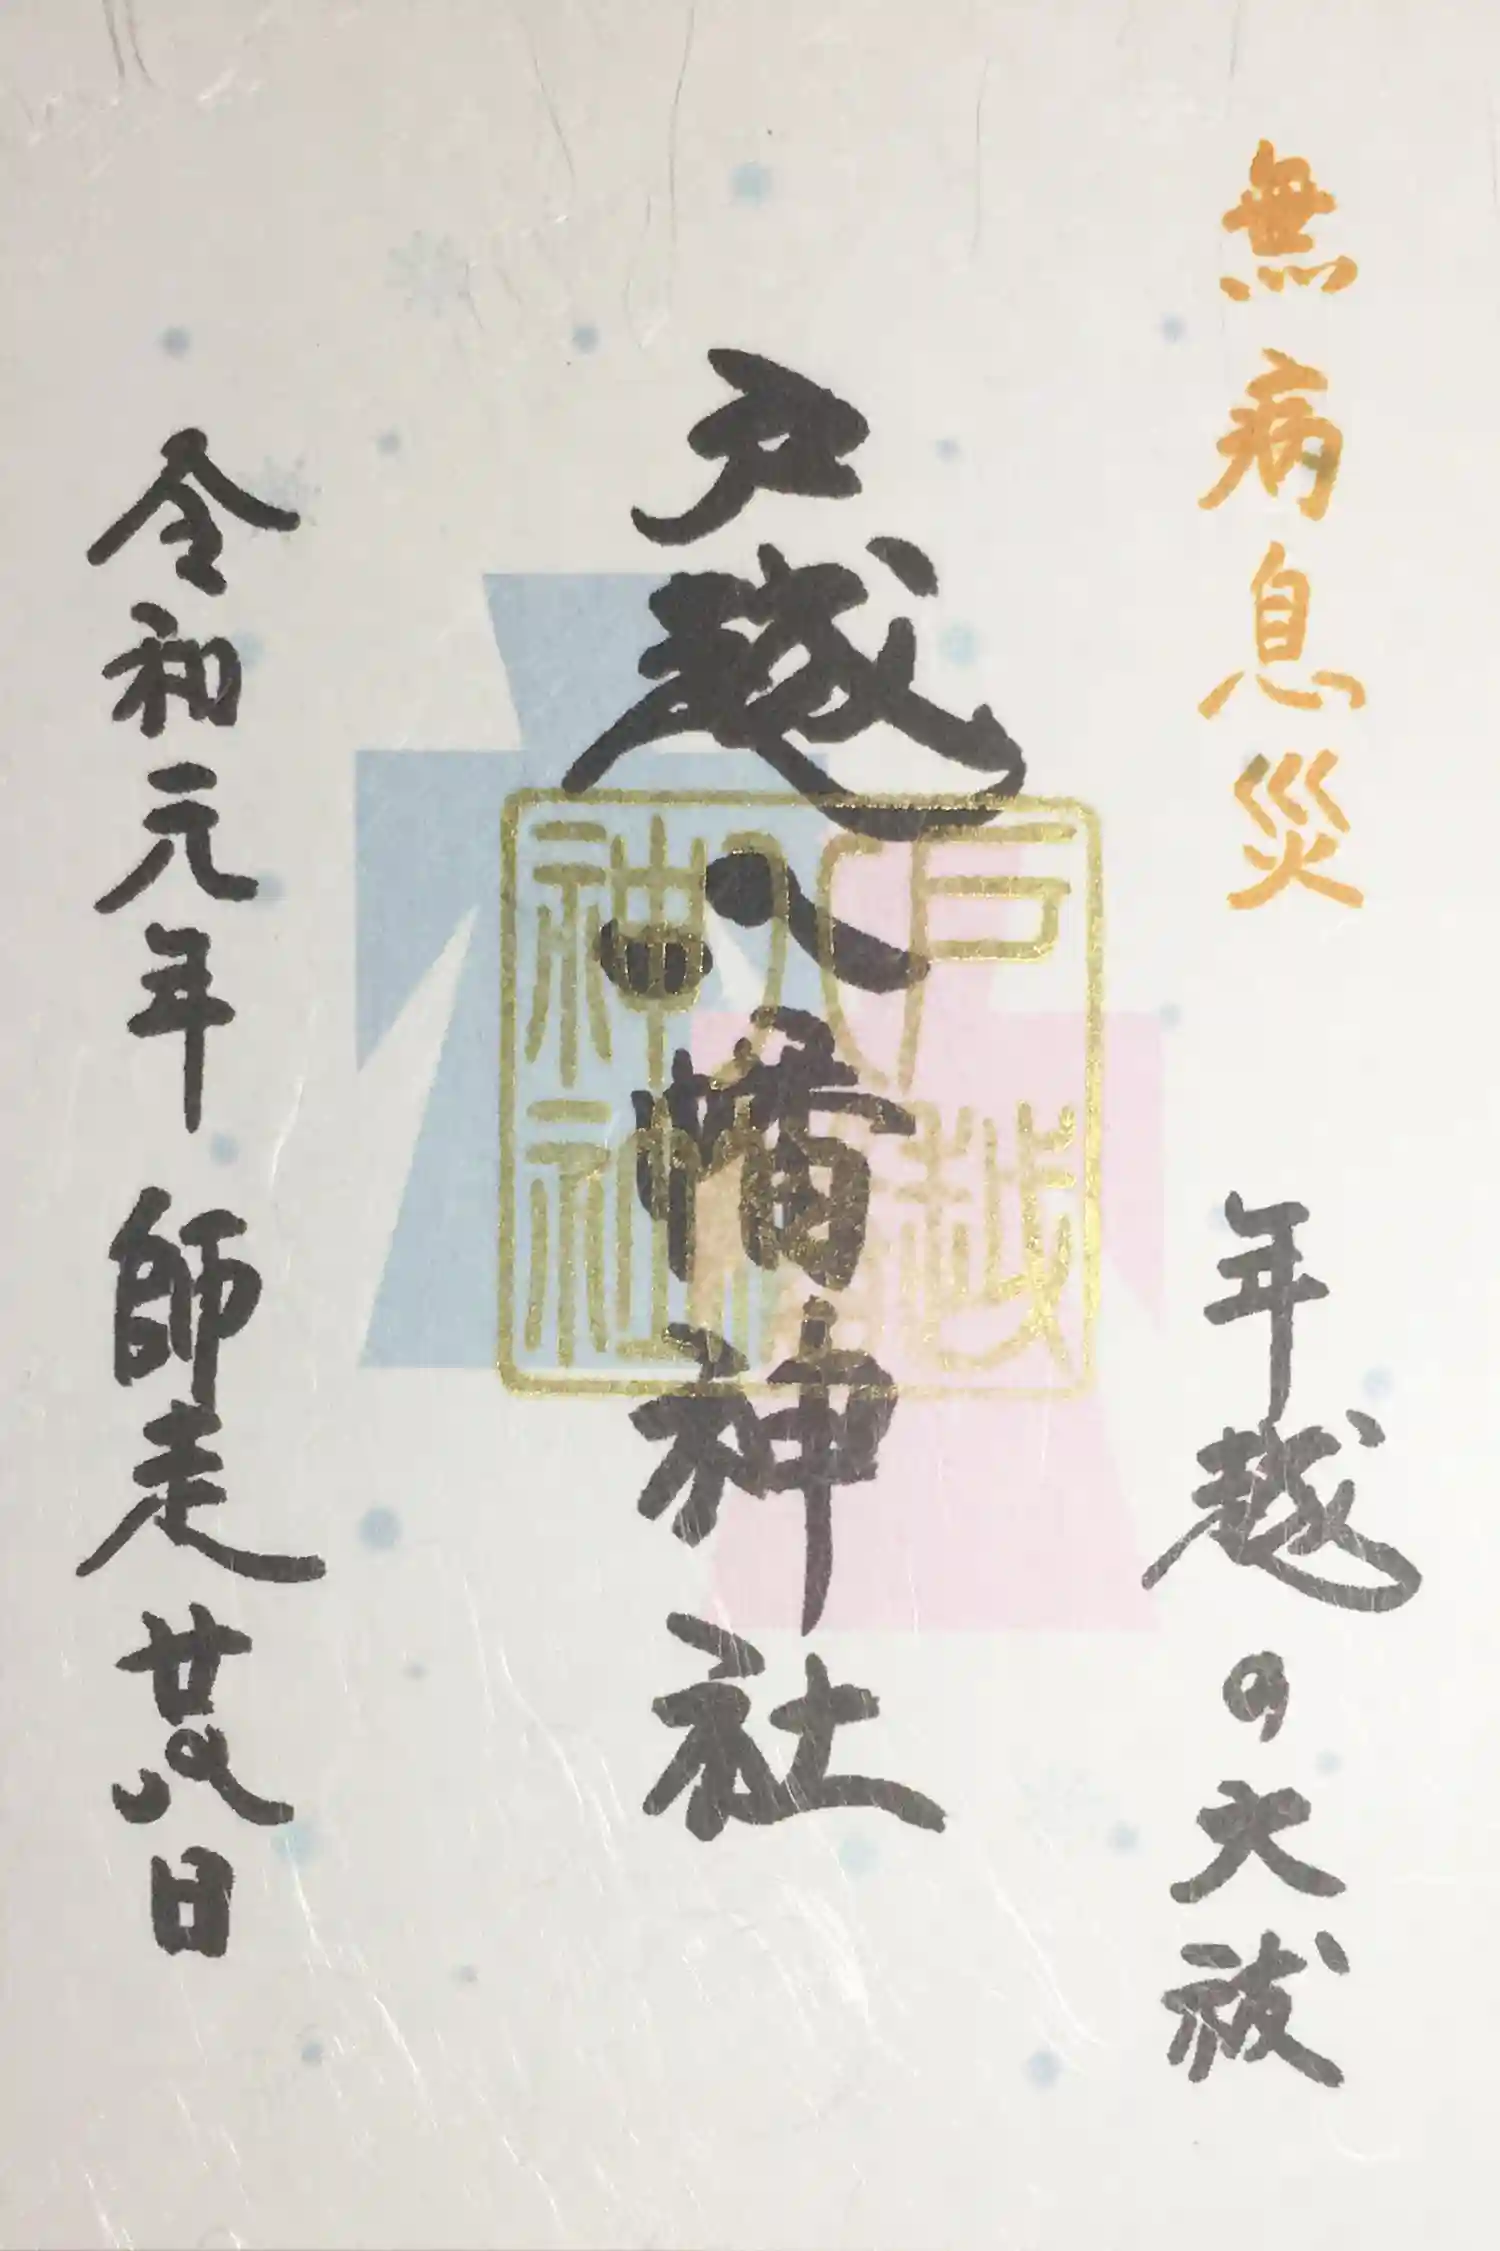 無病息災
年越の大祓
戸越八幡神社
戸越
八幡
神社
令和元年 師走廿八日